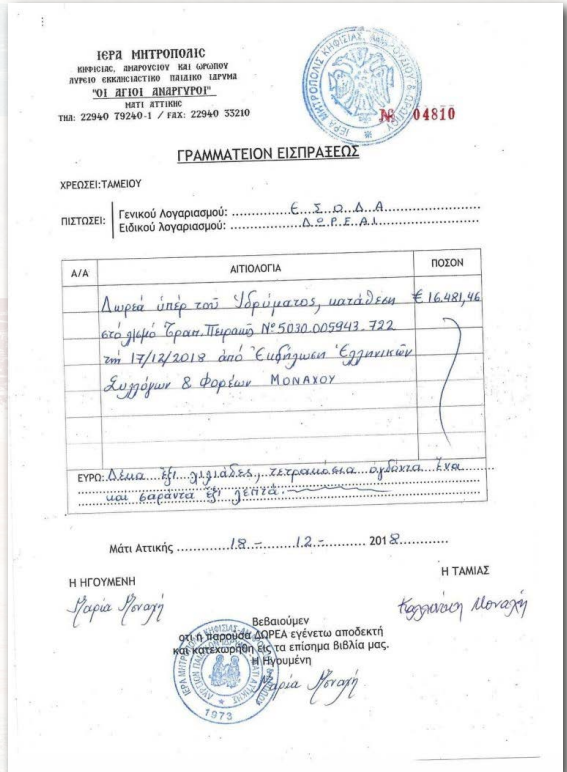 ΙΕΡΑ ΜΗΤΡΟΠΟΛΙΣ
ΚΗΦΙΣΙΑΣ, ΑΜΑΡΟΥΣΙΟΥ ΚΑΙ ΩΡΩΠΟΥ
ΛΥΡΕΙΟ ΕΚΚΛΗΣΙΑΣΤΙΚΟ ΠΑΙΔΙΚΟ ΙΔΡΥΜΑ
"ΟΙ ΑΓΙΟΙ ΑΝΑΡΓΥΡΟΙ"
ΜΑΤΙ ΑΤΤΙΚΗΣ
ΤΗΛ: 22940 79240-1 / FAX: 22940 33210
ΙΕΡΑ ΜΗΤΡΟΠΟΛΙΣ ΚΗΦΙΣΙΑΣ, ΑΜΑΡΟΥΣΙΟΥ & ΩΡΩΠΟΥ
№ 04810
ΓΡΑΜΜΑΤΕΙΟΝ ΕΙΣΠΡΑΞΕΩΣ
ΧΡΕΩΣΕΙ:ΤΑΜΕΙΟΥ
ΠΙΣΤΩΣΕΙ: Γενικού Λογαριασμού: ΕΣΟΔΑ
Ειδικού λογαριασμού: ΔΩΡΕΑΙ
Α/Α ΑΙΤΙΟΛΟΓΙΑ ΠΟΣΟΝ
Δωρεά ὑπέρ τοῦ Ἱδρύματος, κατάθεση € 16.481,46
στό λ/σμό Τραπ. Πειραιῶς Nº 5030.005943.722
τήν 17/12/2018 ἀπό Ἐκδήλωση Ἑλληνικῶν
Συλλόγων & Φορέων ΜΟΝΑΧΟΥ
ΕΥΡΩ: Δέκα ἕξι χιλιάδες, τετρακόσια ὀγδόντα ἕνα
καί σαράντα ἕξι λεπτά.
Μάτι Αττικής 18 - 12 - 2018
Η ΗΓΟΥΜΕΝΗ Η ΤΑΜΙΑΣ
Μαρία Μοναχή Μοναχή
Βεβαιούμεν
οτι ή παρούσα ΔΩΡΕΑ εγένετο αποδεκτή
και κατεχωρήθη εις τα επίσημα βιβλία μας.
Η Ηγουμένη
Μαρία Μοναχή
1973